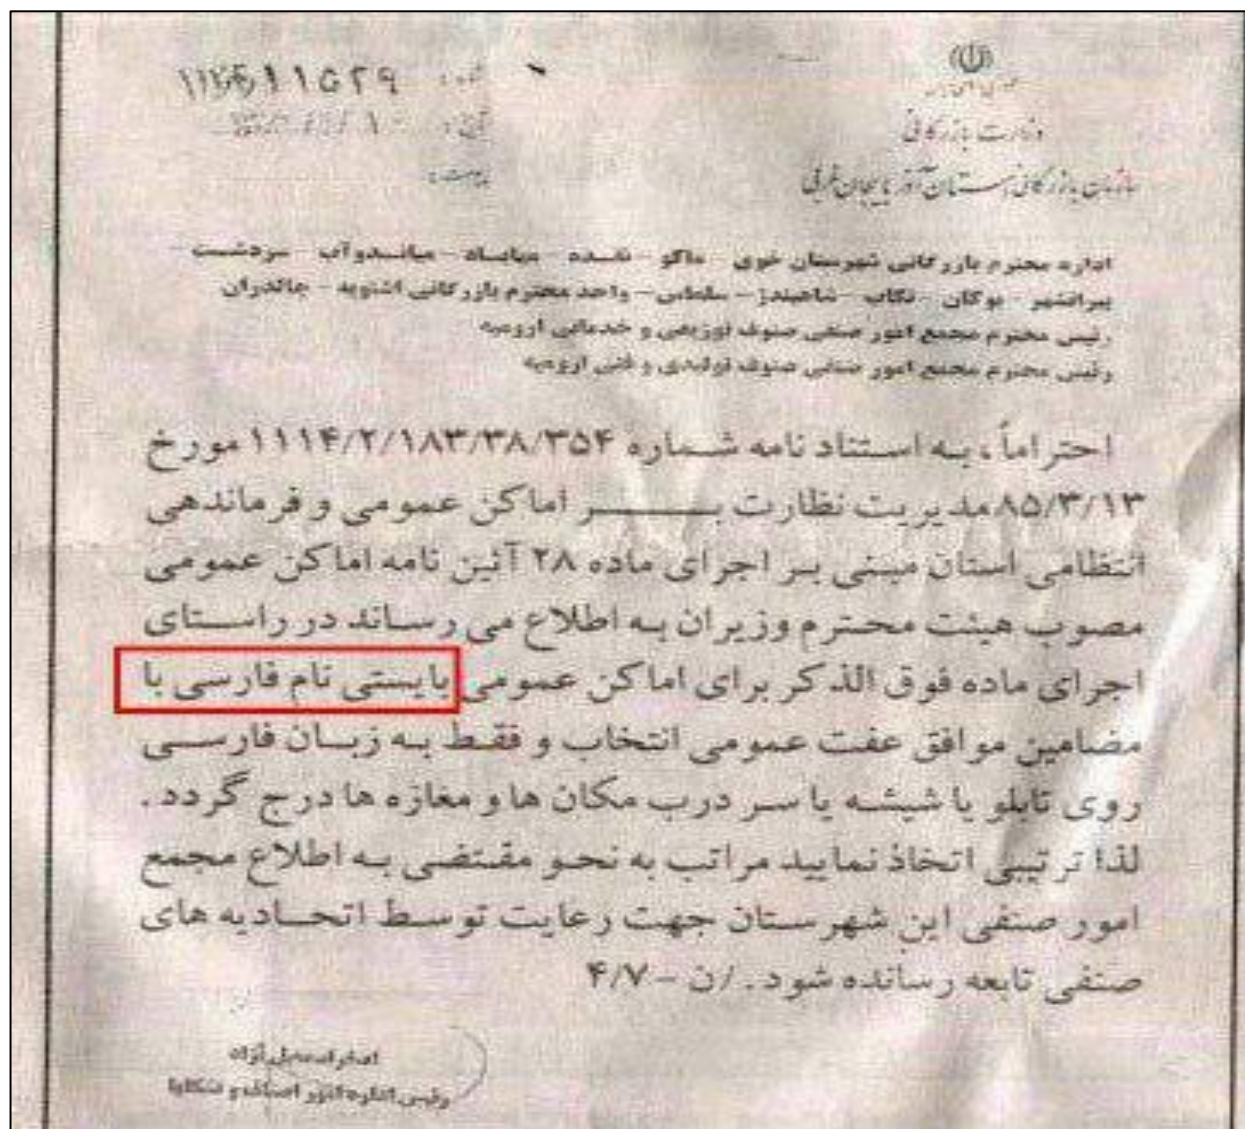 شماره :
۱۱۵۲۹
تاریخ :
پیوست :
وزارت بازرگانی
سازمان بازرگانی استان آذربایجان غربی
اداره محترم بازرگانی شهرستان خوی - ماکو - نقـده - مهابـاد - میانـدوآب - سردشـت -
پیرانشهر - بوکان - تکاب - شاهیندژ - سلماس - واحد محترم بازرگانی اشنویه - چالدران
رئیس محترم مجمع امور صنفی صنوف توزیعی و خدماتی ارومیه
رئیس محترم مجمع امور صنفی صنوف تولیدی و فنی ارومیه
احتراماً ، بـه اسـتناد نامه شـماره ۱۱۱۴/۲/۱۸۳/۳۸/۳۵۴ مورخ
۸۵/۳/۱۳ مدیریت نظارت بـــــر اماکن عمومی و فرماندهی
انتظامی استان مبنی بـر اجرای ماده ۲۸ آئین نامه اماکن عمومی
مصوب هیئت محترم وزیران به اطلاع می رساند در راسـتای
اجرای ماده فوق الذکر برای اماکن عمومی بایستی نام فارسی با
مضامین موافق عفت عمومی انتخاب و فقط بـه زبـان فارسـی
روی تابلو یا شیشـه یا سـر درب مکان ها و مغازه ها درج گردد .
لذا ترتیبی اتخاذ نمایید مراتب به نحـو مقتضـی بـه اطلاع مجمع
امور صنفی این شهرستان جهت رعایت توسـط اتحـادیه های
صنفی تابعه رسانده شود . /ن - ۴/۷
رئیس اداره امور اصناف و